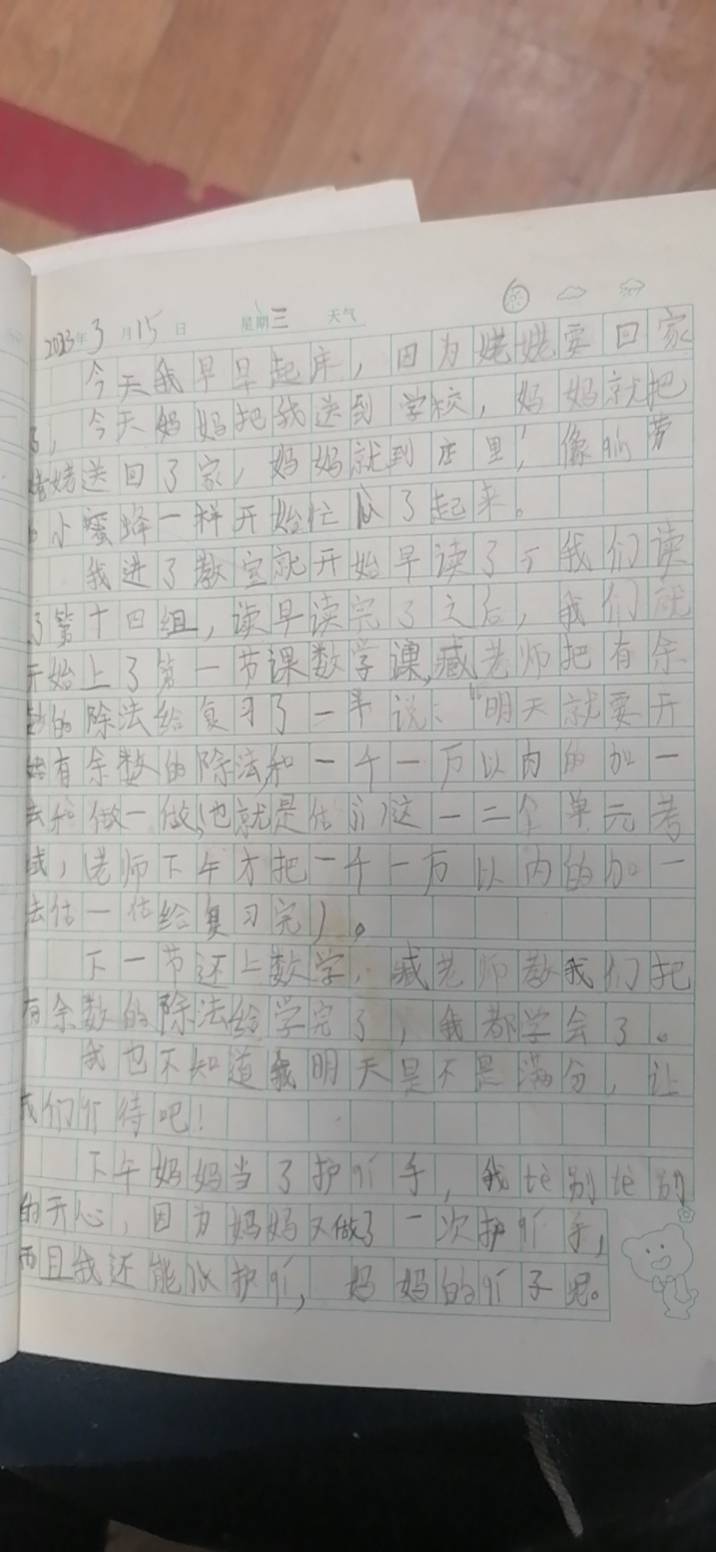 2023年3月15日 星期三 天气
今天我早早起床，因为姥姥要回家
了，今天妈妈把我送到学校，妈妈就把
姥姥送回了家，妈妈就到店里，像勤劳
小蜜蜂一样开始忙了起来。
我进了教室就开始早读了，我们读
了第十四组，读早读完了之后，我们就
开始上了第一节课数学课，臧老师把有余
数的除法给复习了一半说：“明天就要开
始有余数的除法和一千一万以内的加一
去和做一做，也就是估们这一二个单元考
试，（老师下午才把一千一万以内的加一
去估一估给复习完）。
下一节还上数学，臧老师教我们把
有余数的除法给学完了，我都学会了。
我也不知道我明天是不是满分，让
我们行待吧！
下午妈妈当了护行手，我tè别tè别
的开心，因为妈妈又做了一次护行手，
而且我还能从护行，妈妈的行子呢。